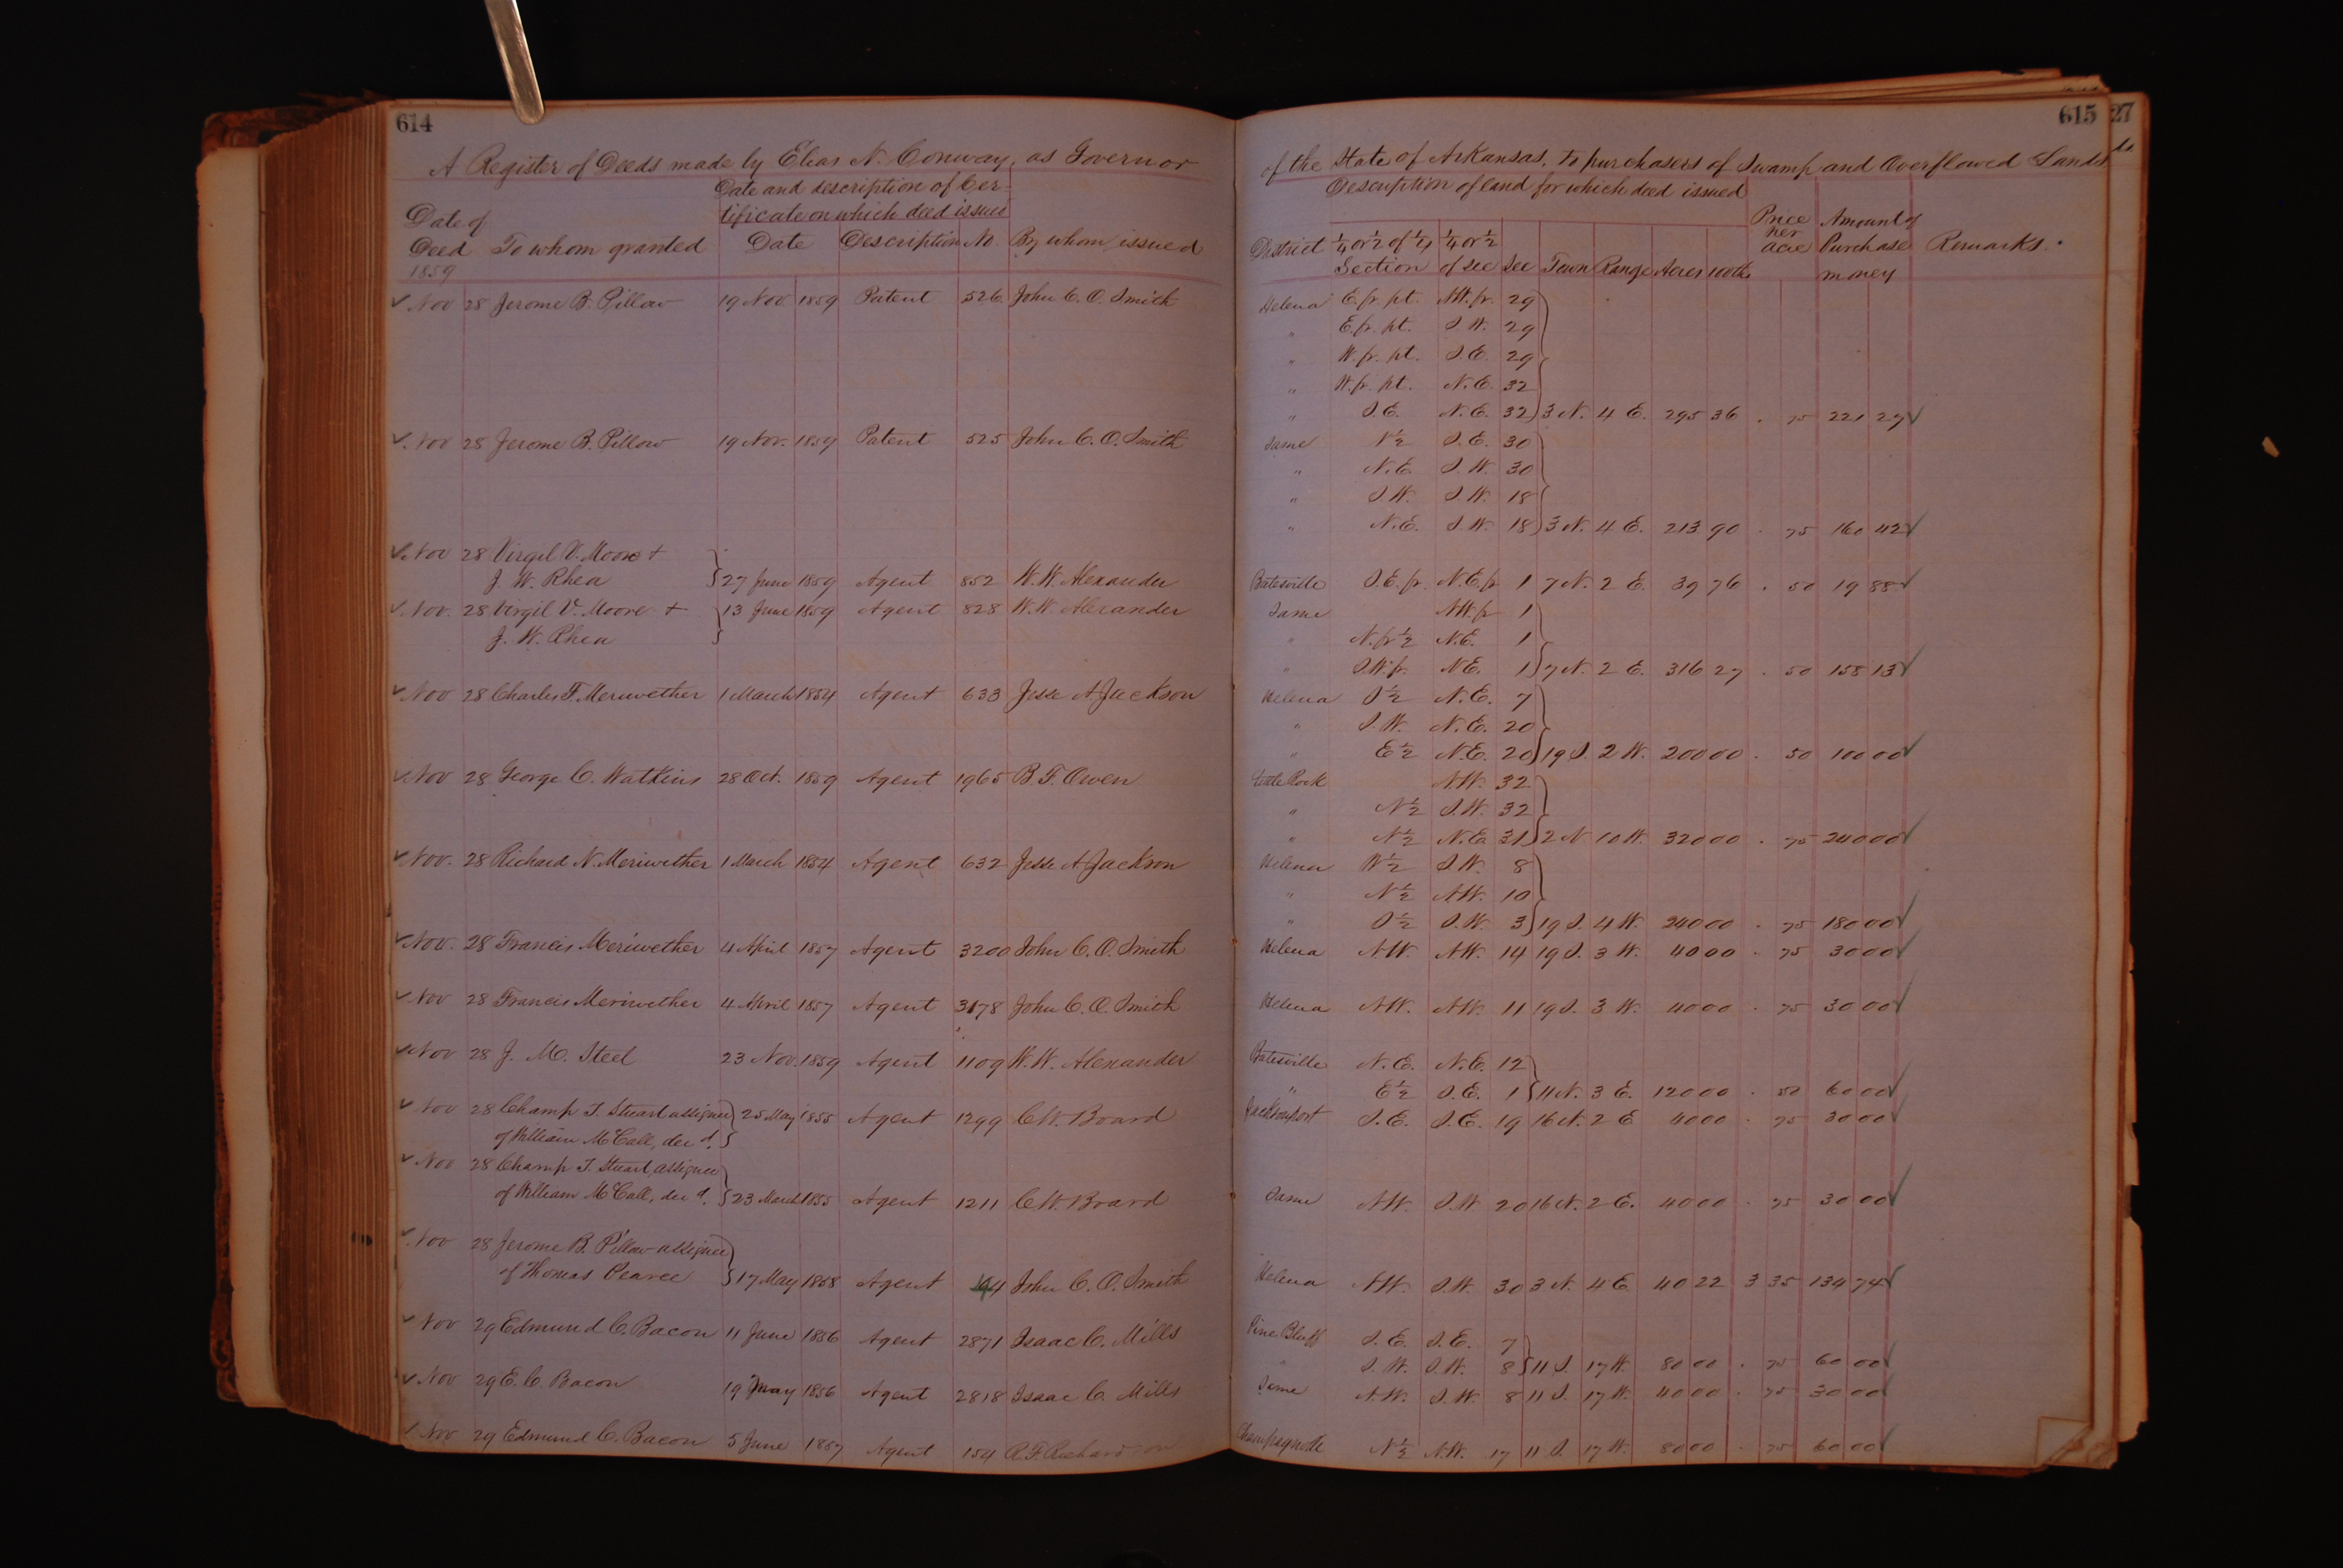 614
A Register of Deeds made by Elias N. Conway, as Governor
Date and description of Cer-
tificate on which deed issued
Date of
Deed To whom granted Date Description No. By whom issued
1859
Nov 28 Jerome B. Pillow 19 Nov 1859 Patent 526 John C. O. Smith
Nov 28 Jerome B. Pillow 19 Nov. 1859 Patent 525 John C. O. Smith
Nov 28 Virgil V. Moore +
J. W. Rhea 27 June 1859 Agent 852 W. W. Alexander
Nov. 28 Virgil V. Moore + 13 June 1859 Agent 828 W. W. Alexander
J. W. Rhea
Nov 28 Charles T. Meriwether 1 March 1854 Agent 633 Jesse A Jackson
Nov 28 George C. Watkins 28 Oct. 1859 Agent 1965 B. F. Owen
Nov. 28 Richard N. Meriwether 1 March 1854 Agent 632 Jesse A Jackson
Nov. 28 Francis Meriwether 4 April 1857 Agent 3200 John C. O. Smith
Nov 28 Francis Meriwether 4 April 1857 Agent 3178 John C. O. Smith
Nov 28 J. M. Steel 23 Nov. 1859 Agent 1109 W. W. Alexander
Nov 28 Champ T. Stuart assignee 25 May 1855 Agent 1299 C W. Board
of William McCall, dec d.
Nov 28 Champ T. Stuart, assignee
of William McCall, dec d. 23 March 1855 Agent 1211 C W. Board
Nov 28 Jerome B. Pillow assignee
of Thomas Pearce 17 May 1858 Agent John C. O. Smith
Nov 29 Edmund C. Bacon 11 June 1856 Agent 2871 Isaac C. Mills
Nov 29 E. C. Bacon 19 May 1856 Agent 2818 Isaac C. Mills
Nov 29 Edmund C. Bacon 5 June 1857 Agent 154 R. F. Richardson
615 27
of the State of Arkansas, to purchasers of Swamp and Overflowed Lands
Description of land for which deed issued
Price Amount of
District ¼ or ½ of ¼ ¼ or ½ per acre Purchase Remarks.
Section of Sec Sec Town Range Acres 100ths money
Helena E. fr. pt. NW. fr. 29
" E. fr. pt. S. W. 29
" W. fr. pt. S. E. 29
" W. fr. pt. N. E. 32
" S. E. N. E. 32 3 N. 4 E. 295 36 . 75 221 27
Same N ½ S. E. 30
" N. E. S. W. 30
" S. W. S. W. 18
" N. E. S. W. 18 3 N. 4 E. 213 90 . 75 160 42
Batesville S. E. fr. N. E. fr 1 7 N. 2 E. 39 76 . 50 19 88
Same NW. fr 1
" N. fr ½ N. E. 1
" S. W. fr. N E. 1 7 N. 2 E. 316 27 . 50 158 13
Helena S ½ N. E. 7
" S. W. N. E. 20
" E ½ N. E. 20 19 S. 2 W. 200 00 . 50 100 00
Little Rock N.W. 32
" N ½ S. W. 32
" N ½ N. E. 31 2 N 10 W. 320 00 . 75 240 00
Helena W ½ S. W. 8
" N ½ N.W. 10
" S ½ S. W. 3 19 S. 4 W. 240 00 . 75 180 00
Helena N.W. N.W. 14 19 S. 3 W. 40 00 . 75 30 00
Helena N.W. N.W. 11 19 S. 3 W. 40 00 . 75 30 00
Batesville N. E. N. E. 12
" E ½ S. E. 1 11 N. 3 E. 120 00 . 50 60 00
Jacksonport S. E. S. E. 19 16 N. 2 E 40 00 . 75 30 00
Same N.W. S. W. 20 16 N. 2 E. 40 00 . 75 30 00
Helena N.W. S. W. 30 3 N. 4 E 40 22 3 35 134 74
Pine Bluff S. E. S. E. 7
" S. W. S. W. 8 11 S. 17 W. 80 00 . 75 60 00
Same N.W. S. W. 8 11 S. 17 W. 40 00 . 75 30 00
Champagnole N ½ N.W. 17 11 S. 17 W. 80 00 . 75 60 00